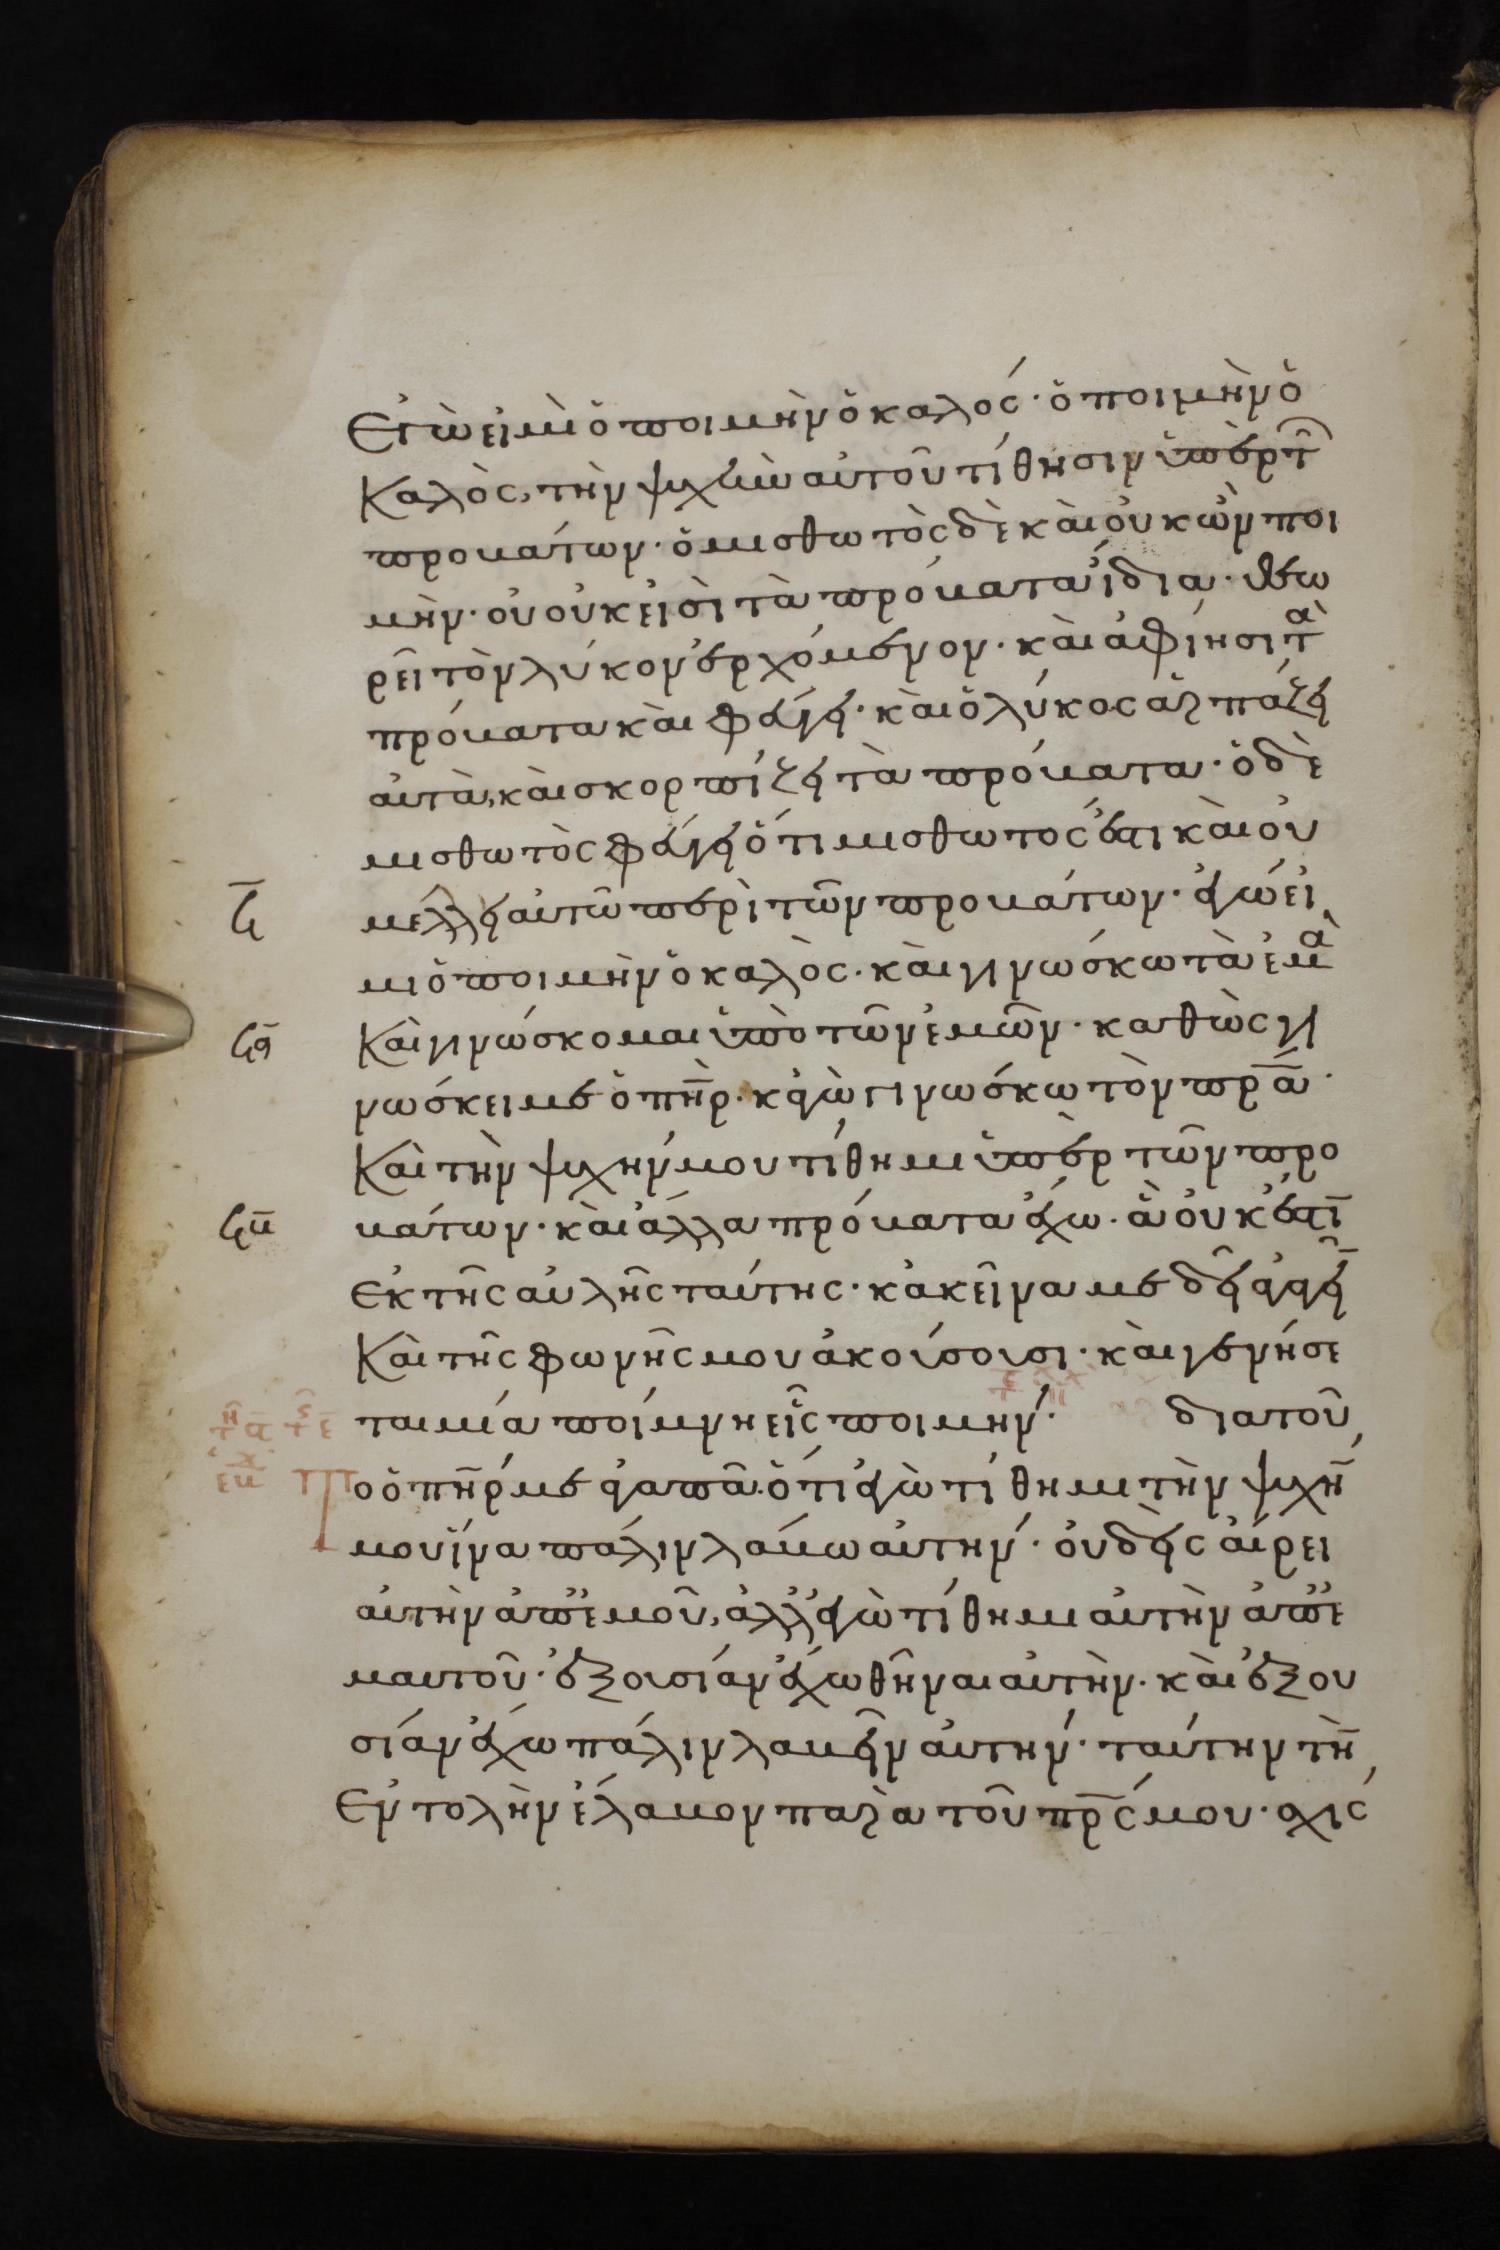 Ἐγὼ εἰμὶ ὁ ποιμὴν ὁ καλός· ὁ ποιμὴν ὁ
καλὸς, τὴν ψυχὴν αὐτοῦ τίθησιν ὑπὲρ τῶ̅
προβάτων· ὁ μισθωτὸς δὲ καὶ οὐκ ὢν ποι
μὴν· οὗ οὐκ εἰσὶ τὰ πρόβατα ἴδια· θεω
ρεῖ τὸν λύκον ἐρχόμενον· καὶ ἀφίησι τὰ
πρόβατα καὶ φεύγει· καὶ ὁ λύκος ἁρπάζει
αὐτὰ, καὶ σκορπίζει τὰ πρόβατα· ὁ δὲ
μισθωτὸς φεύγει ὅτι μισθωτός ἐστι καὶ οὐ
ϟ̅ μέλλει αὐτῶ περὶ τῶν προβάτων· ἐγώ εἰ
μι ὁ ποιμὴν ὁ καλὸς· καὶ γινώσκω τὰ ἐμὰ
ϟα̅ καὶ γινώσκομαι ὑπὸ τῶν ἐμῶν· καθὼς γι
νώσκει με ὁ π̅η̅ρ· κἀγὼ γινώσκω τὸν π̅ρ̅α̅·
καὶ τὴν ψυχήν μου τίθημι ὑπὲρ τῶν προ
ϟβ̅ βάτων· καὶ ἄλλα πρόβατα ἔχω· ἃ οὐκ ἔστι̅
ἐκ τῆς αὐλῆς ταύτης· κἀκεῖνα με δεῖ ἀγαγεῖ̅
καὶ τῆς φωνῆς μου ἀκούσουσι· καὶ γενήσε
ται μία ποίμνη εἷς ποιμήν· διατοῦ
το ὁ π̅η̅ρ με ἀγαπᾶ· ὅτι ἐγὼ τίθημι τὴν ψυχή̅
μου ἵνα πάλιν λάβω αὐτήν· οὐδεὶς αἴρει
αὐτὴν ἀπ' ἐμοῦ, ἀλλ' ἐγὼ τίθημι αὐτὴν ἀπ' ἐ
μαυτοῦ· ἐξουσίαν ἔχω θῆναι αὐτὴν· καὶ ἐξου
σίαν ἔχω πάλιν λαβεῖν αὐτήν· ταύτην τὴ̅
ἐντολὴν ἔλαβον παρὰ τοῦ π̅ρ̅ς μου· σχίς